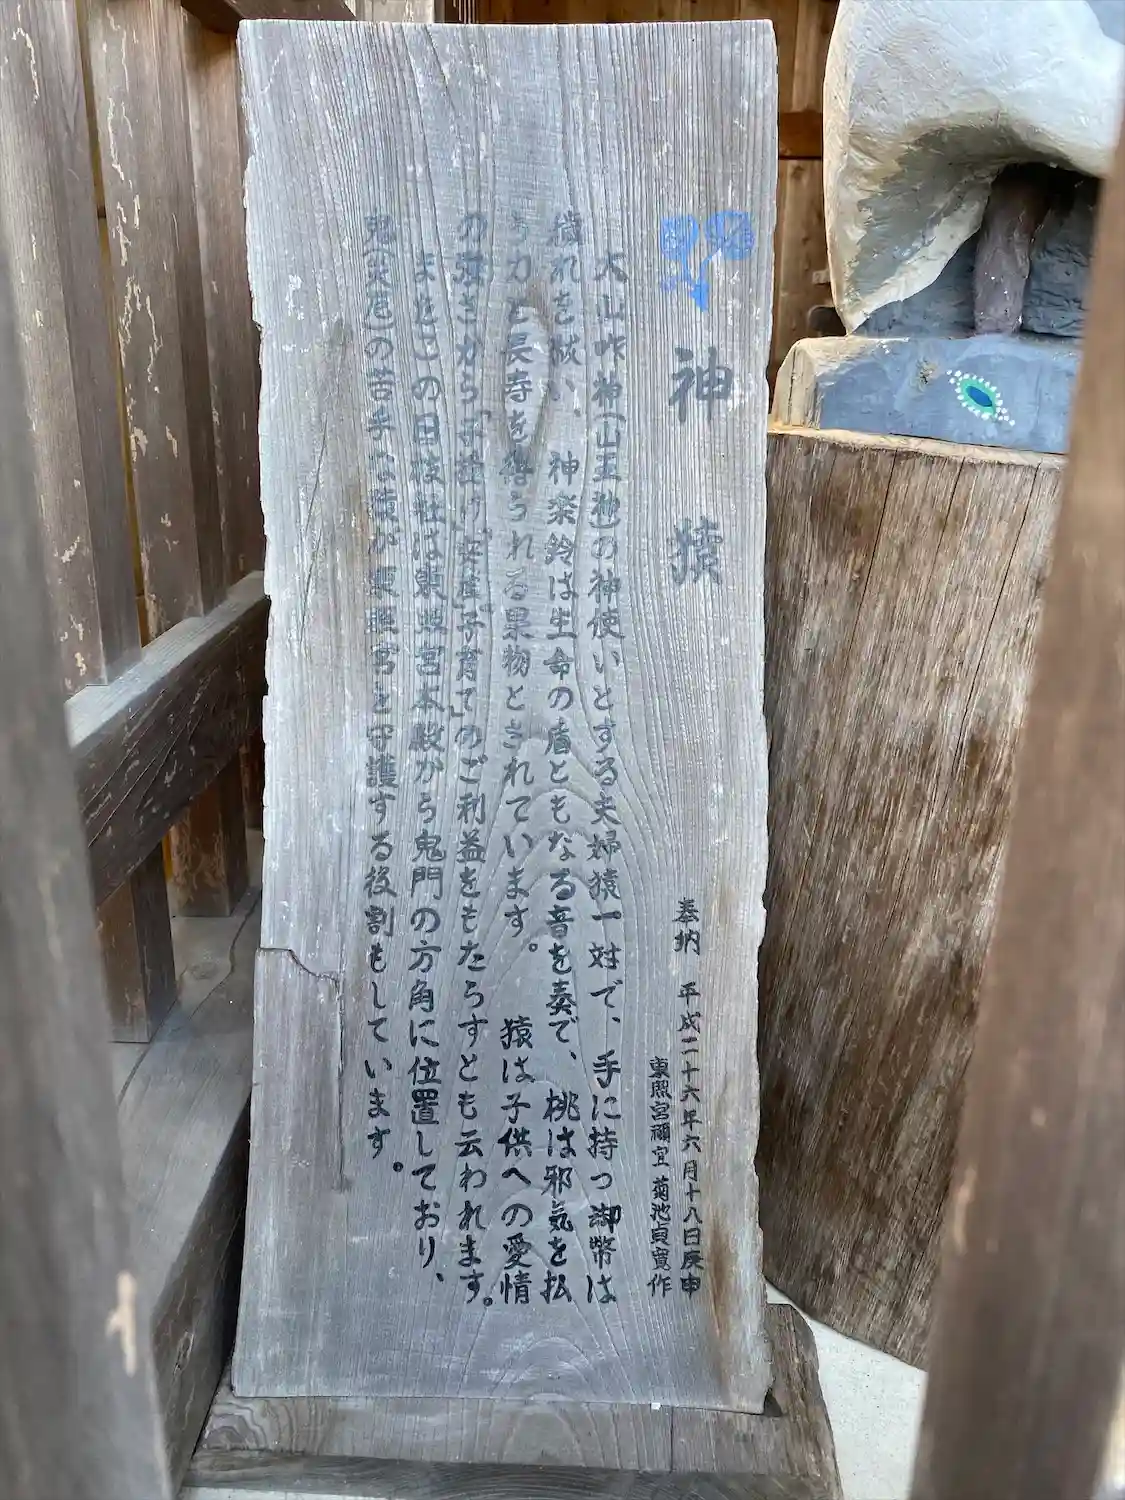 神猿
奉納 平成二十六年六月十八日庚申
東照宮禰宜 菊池貞寛作
大山咋神(山王神)の神使いとする夫婦猿一対で、手に持つ御幣は
穢れを祓い、神楽鈴は生命の盾ともなる音を奏で、桃は邪気を払
う力と長寿を得られる果物とされています。 猿は子供への愛情
の強さから「子授け」「安産」「子育て」のご利益をもたらすとも云われます。
またこの日枝社は東照宮本殿から鬼門の方角に位置しており、
鬼の苦手な猿が東照宮を守護する役割もしています。